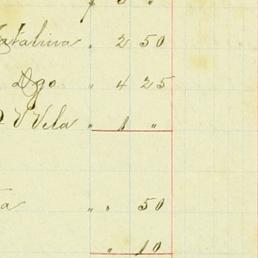 atalina " 2 50
Dgo " 4 25
V Vela " 1 "
a " " 50
" 10